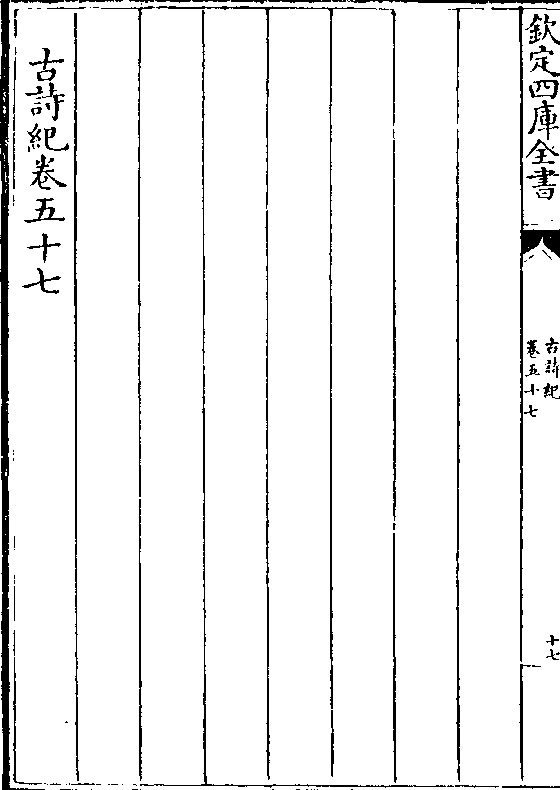 欽定四庫全書
古詩紀
卷五十七
十七
古詩紀卷五十七